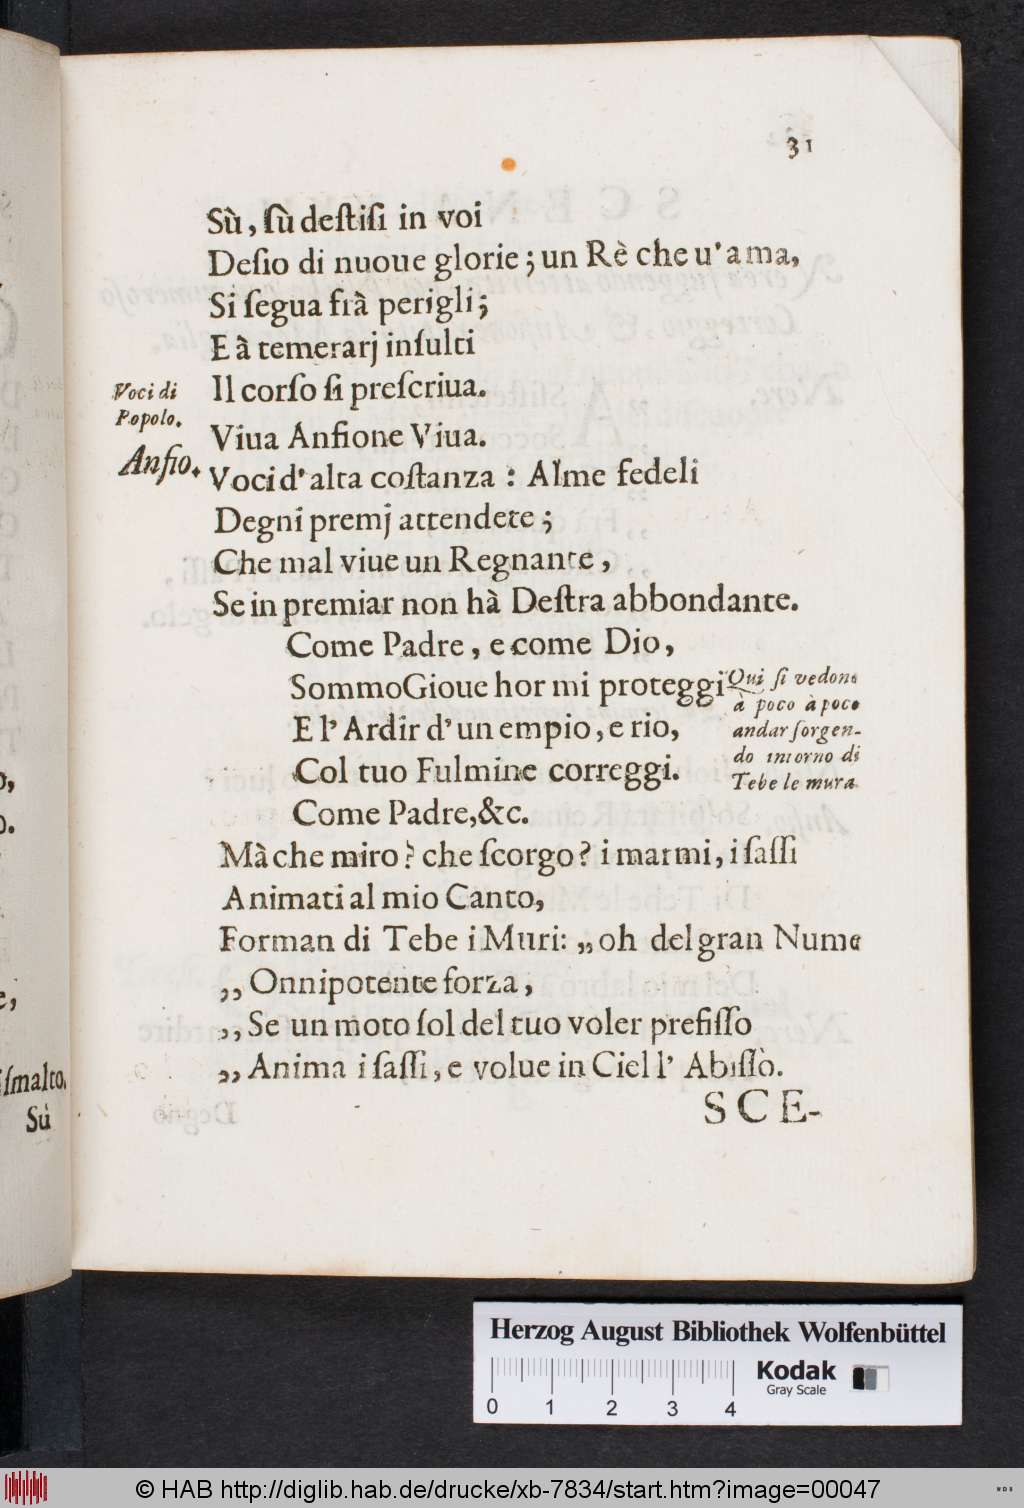 31
Sù, ſù deſtiſi in voi
Deſio di nuoue glorie; un Rè che u'ama,
Si ſegua frà perigli;
E à temerarj inſulti
Il corſo ſi preſcriua.
Voci di
Popolo.
Viua Anfione Viua.
Anfio.
Voci d'alta coſtanza: Alme fedeli
Degni premj attendete;
Che mal viue un Regnante,
Se in premiar non hà Deſtra abbondante.
Come Padre, e come Dio,
Sommo Gioue hor mi proteggi
E l'Ardir d'un empio, e rio,
Col tuo Fulmine correggi.
Come Padre, &c.
Qui ſi vedono
à poco à poco
andar ſorgen-
do intorno di
Tebe le mura
Mà che miro? che ſcorgo? i marmi, i ſaſſi
Animati al mio Canto,
Forman di Tebe i Muri: „oh del gran Nume
„Onnipotente forza,
„Se un moto ſol del tuo voler prefiſſo
„Anima i ſaſſi, e volue in Ciel l'Abiſſò.
SCE-
ſmalto.
Sù
Herzog August Bibliothek Wolfenbüttel
Kodak
Gray Scale
0 1 2 3 4
© HAB http://diglib.hab.de/drucke/xb-7834/start.htm?image=00047